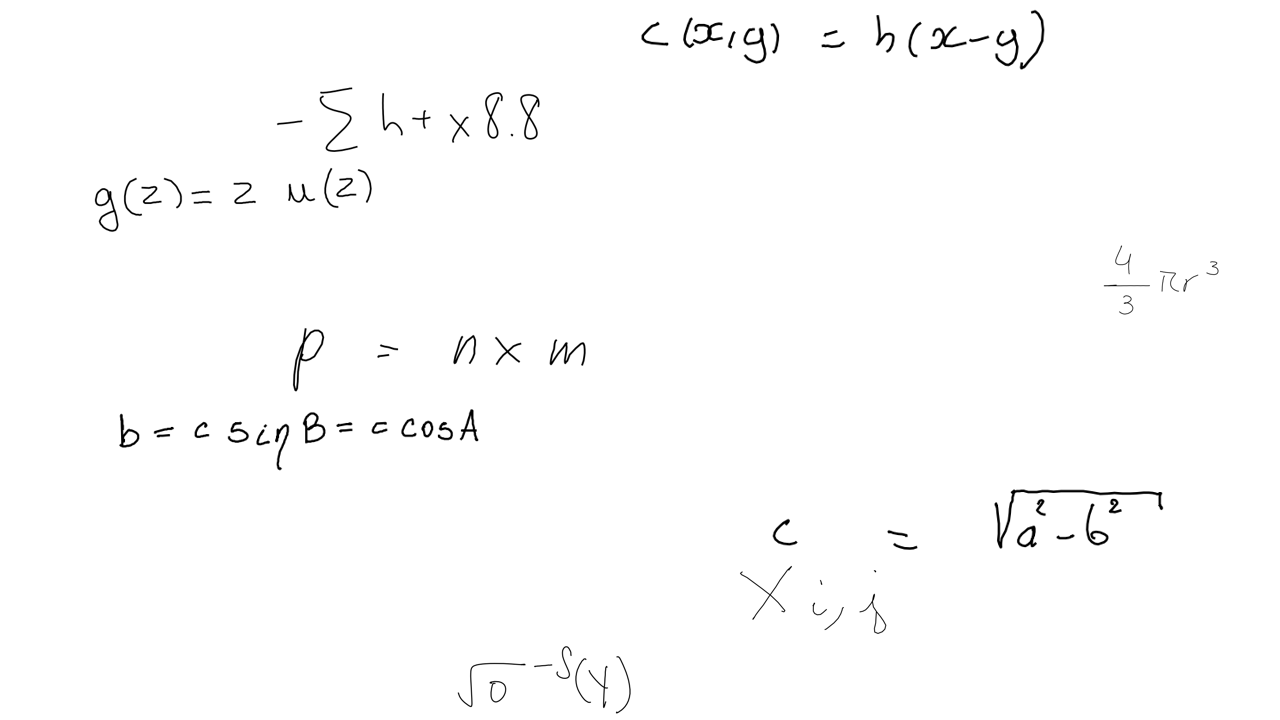 c(x,y) = h(x-y)
-∑ h + x 8.8
g(z) = z u(z)
4/3 πr³
p = n × m
b = c sin B = c cos A
c = √(a² - b²)
X i,j
√0 ^-S(y)